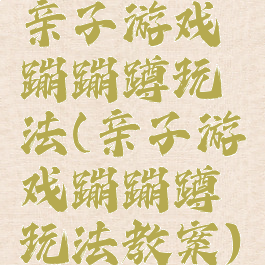 亲子游戏
蹦蹦蹲玩
法(亲子游
戏蹦蹦蹲
玩法教案)